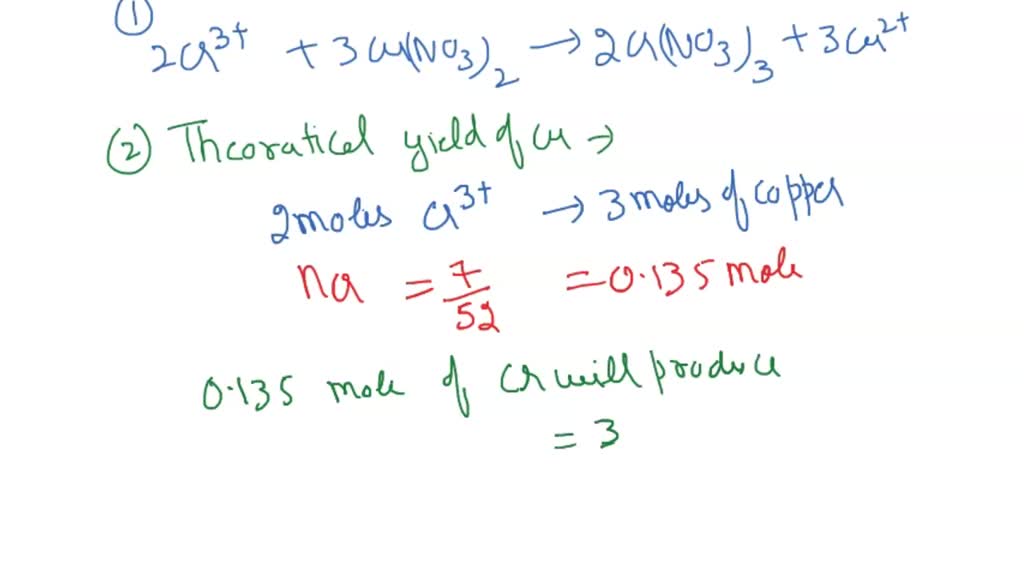 ①
2Cr³⁺ + 3Cu(NO₃)₂ → 2Cr(NO₃)₃ + 3Cu²⁺
② Theoratical yield of Cu →
2 moles Cr³⁺ → 3 moles of copper
nCr = 7/52 = 0.135 mole
0.135 mole of Cr will produce
= 3